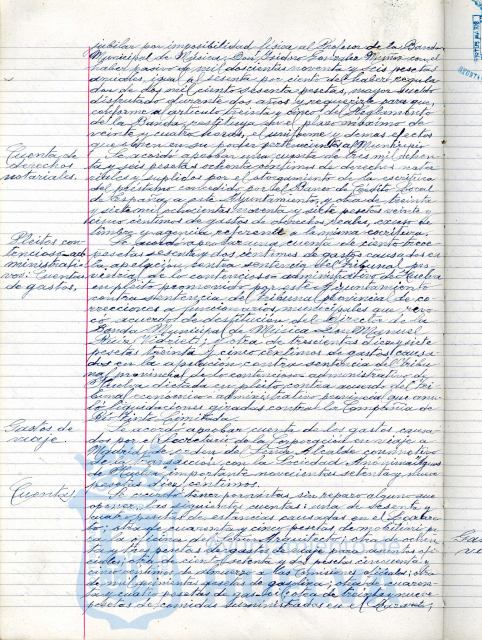 jubilar por imposibilidad física al Profesor de la Banda
Municipal de Música, Don Isidro González Minón con el
haber pasivo de mil doscientas noventa y seis pesetas
anuales igual al sesenta por ciento del haber regula
dor de dos mil ciento sesenta pesetas, mayor sueldo
disfrutado durante dos años y requerirle para que,
conforme al artículo treinta y cinco del Reglamento
de la Banda, restituya en el plazo máximo de
veinte y cuatro horas, el uniforme y demas efectos
que obren en su poder pertenecientes al Municipio
Cuenta de
derechos
notariales.
Se acordó aprobar una cuenta de tres mil ochen
ta y seis pesetas ochenta céntimos de derechos nota
riales y suplidos por el otorgamiento de la escritura
del préstamo concedido por el Banco de Crédito Local
de España, a este Ayuntamiento, y otra de treinta
y siete mil ochocientas ochenta y siete pesetas veinte y
cinco céntimos de gastos de derechos reales, exceso de
timbre y agencia, referente a la misma escritura.
Pleitos con-
tencioso-ad-
ministrati-
vos: Cuentas
de gastos,
Se acordó aprobar una cuenta de ciento trece
pesetas sesenta y dos céntimos de gastos causados en
la apelación contra sentencia del Tribunal pro-
vincial de lo contencioso administrativo de Huelva
en pleito promovido por este Ayuntamiento
contra sentencia del Tribunal provincial de co-
rrecciones a funcionarios municipales que revo
có acuerdo de destitución del Director de la
Banda Municipal de Música Don Manuel
Ruiz Vidriet; y otra de trescientas diez y siete
pesetas treinta y cinco céntimos de gastos causa-
dos en la apelación contra sentencia del Tribu-
nal provincial de lo contencioso administrativo de
Huelva dictada en pleito contra acuerdo del Tri
bunal económico-administrativo provincial que anu
ló liquidaciones giradas contra la Compañía de
Río Tinto Limitada.
Gastos de
viaje.
Se acordó aprobar cuenta de los gastos causa-
dos por el Secretario de la Corporación en viaje a
Madrid, de orden del Señor Alcalde con motivo
de la transacción con la Sociedad Anónima Aguas
de Huelva, importante novecientas setenta y nueve
pesetas diez céntimos.
Cuentas
Se acordó tener por vistas, sin reparo alguno que
oponer, las siguientes cuentas: una de sesenta y
cuatro pesetas de estancias causadas en el Lazare-
to; otra de cuarenta y cinco pesetas de mobiliario pa
ra la oficina del Señor Arquitecto; otra de ochen
ta y tres pesetas de gastos de viaje para asuntos ofi
ciales; otra de cien to setenta y dos pesetas cincuenta y
cinco céntimos de almuerzo a las Comisiones oficiales; otra
de mil quinientas pesetas de gasolina; otra de cuaren-
ta y cuatro pesetas de gas-oil; otra de treinta y nueve
pesetas de comidas suministradas en el